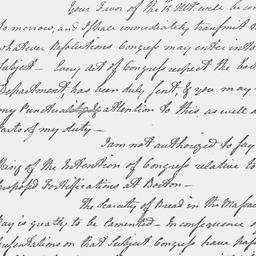 Your Favor of the 16 Ulto. will be com
to morrow, and I shall immediately transmit t
whatever Resolutions Congress may enter into
Subject — Every Act of Congress respect the
Department has been duly sent, & you may
my Punctuality & attention to this as well a
arts of my duty —
I am not authorized to say
thing of the Intention of Congress relative to
proposed Fortifications at Boston —
The Scarcity of Bread in the Massac
Bay is greatly to be lamented — In consequence o
presentations on that Subject Congress have pass